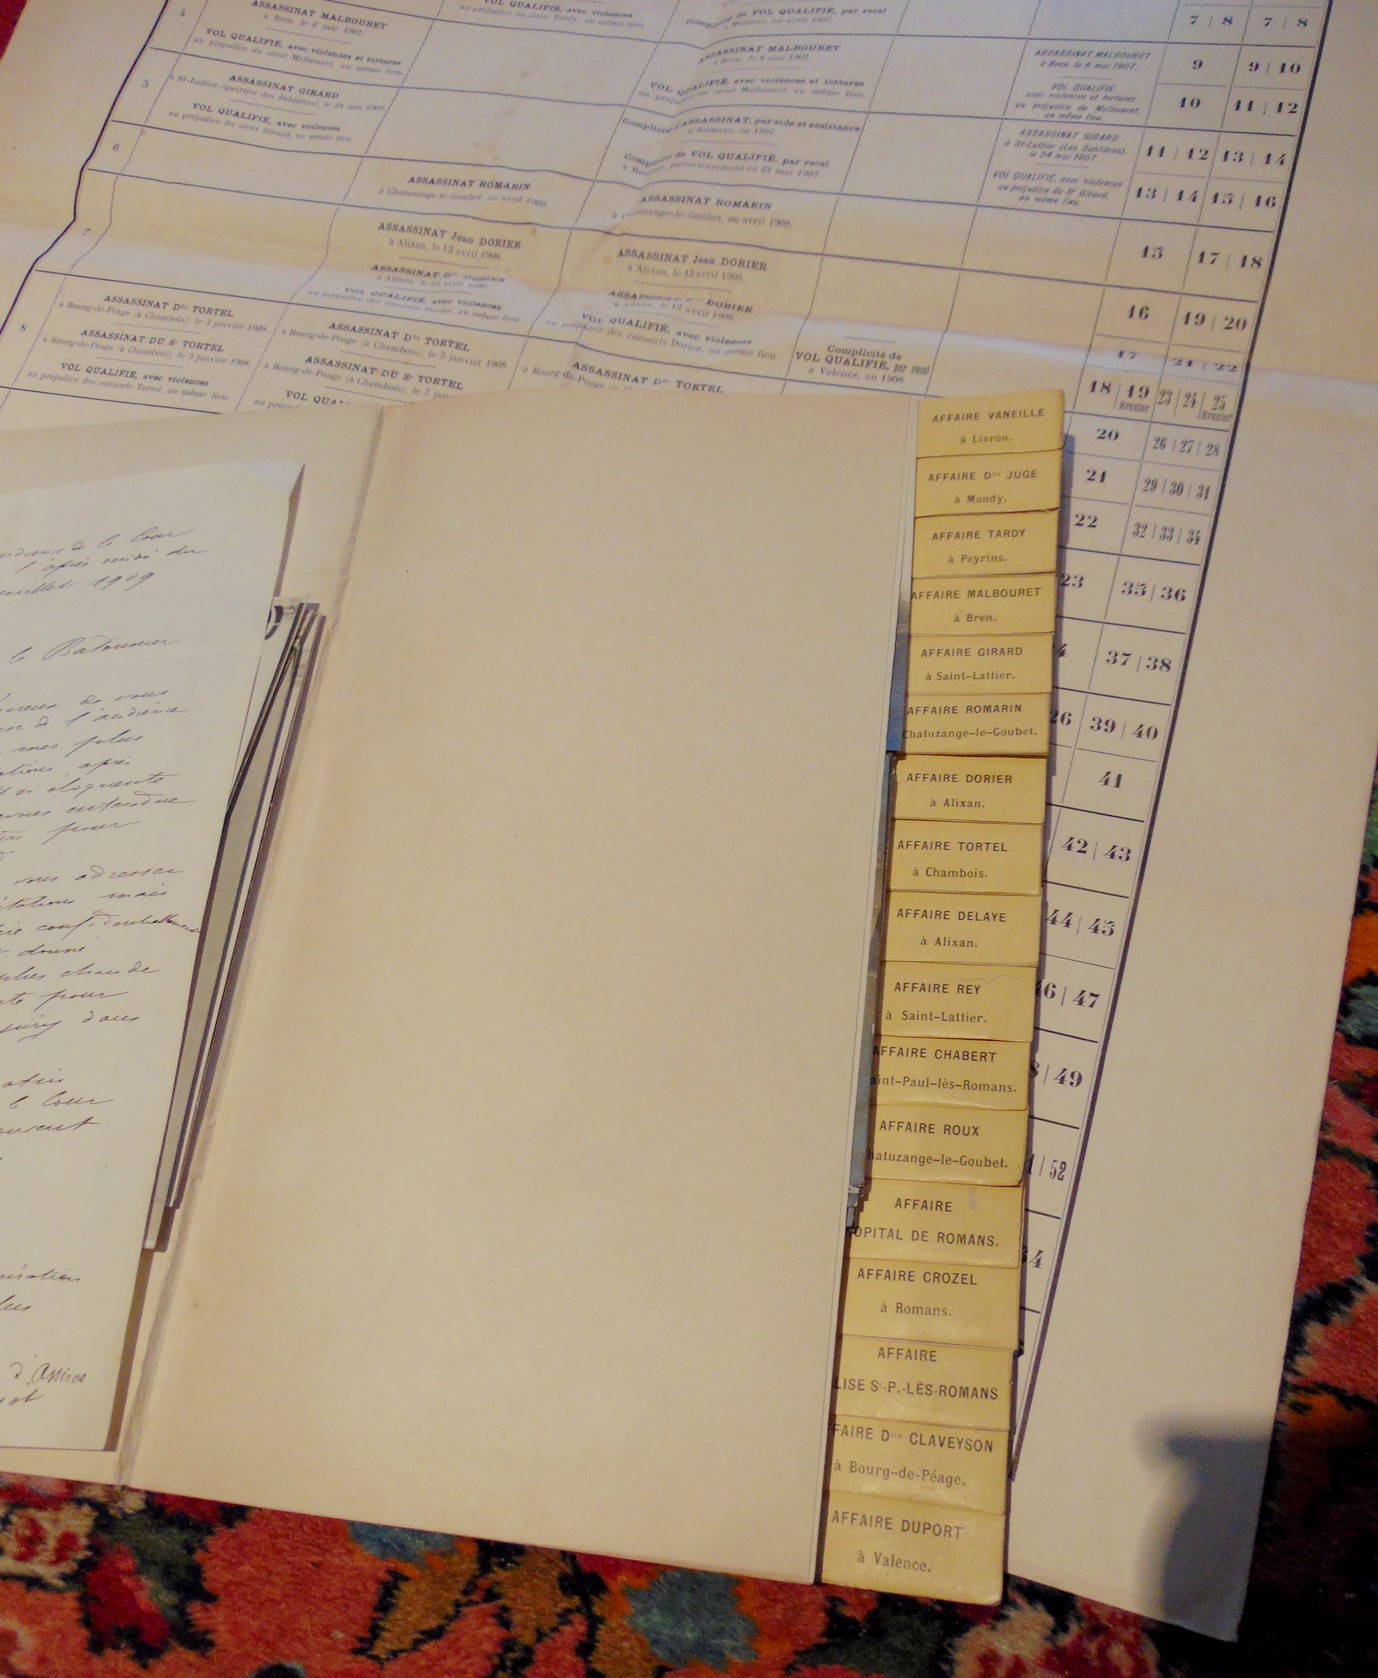 4
ASSASSINAT MALBOURET
à Bren, le 6 mai 1907.
VOL QUALIFIÉ, avec violences et tortures
au préjudice du sieur Malbouret, au même lieu.
5
ASSASSINAT GIRARD
à St-Lattier (quartier des Sablières), le 24 mai 1907.
VOL QUALIFIÉ, avec violences
au préjudice du sieur Girard, au même lieu.
6
7
8
ASSASSINAT Dlle TORTEL
à Bourg-de-Péage (à Chambois), le 3 janvier 1908.
ASSASSINAT DU Sr TORTEL
à Bourg-de-Péage (à Chambois), le 3 janvier 1908.
VOL QUALIFIÉ, avec violences
au préjudice des consorts Tortel, au même lieu.
VOL QUALIFIÉ, avec violences
au préjudice du sieur Tardy, au même lieu.
ASSASSINAT ROMARIN
à Chatuzange-le-Goubet, en avril 1908.
ASSASSINAT Jean DORIER
à Alixan, le 13 avril 1908.
ASSASSINAT DORIER
à Alixan, le 13 avril 1908.
VOL QUALIFIÉ, avec violences
au préjudice des consorts Dorier, au même lieu.
ASSASSINAT Dlle TORTEL
à Bourg-de-Péage (à Chambois), le 3 janvier 1908.
ASSASSINAT DU Sr TORTEL
à Bourg-de-Péage (à Chambois), le 3
VOL QUAL
Complicité de VOL QUALIFIÉ, par recel
à Romans, en avril 1907.
ASSASSINAT MALBOURET
à Bren, le 6 mai 1907.
VOL QUALIFIÉ, avec violences et tortures
au préjudice du sieur Malbouret, au même lieu.
Complicité d'ASSASSINAT, par aide et assistance
à Romans, en 1907.
Complicité de VOL QUALIFIÉ, par recel
postérieurement au 24 mai 1907.
ASSASSINAT ROMARIN
à Chatuzange-le-Goubet, en avril 1908.
ASSASSINAT Jean DORIER
à Alixan, le 13 avril 1908.
ASSASSINAT DORIER
à Alixan, le 13 avril 1908.
VOL QUALIFIÉ, avec violences
au préjudice des consorts Dorier, au même lieu.
ASSASSINAT Dlle TORTEL
à Bourg-de-Péage
Complicité de
VOL QUALIFIÉ, par recel
à Valence, en 1908.
ASSASSINAT MALBOURET
à Bren, le 6 mai 1907.
VOL QUALIFIÉ
avec violences et tortures
au préjudice de Malbouret,
au même lieu.
ASSASSINAT GIRARD
à St-Lattier (Les Sablières),
le 24 mai 1907.
VOL QUALIFIÉ, avec violences
au préjudice du Sr Girard,
au même lieu.
7 | 8 7 | 8
9 9 | 10
10 11 | 12
11 | 12 13 | 14
13 | 14 15 | 16
15 17 | 18
16 19 | 20
17 21 | 22
18 | 19 Brezier 23 | 24 | 25 Brezier
20 26 | 27 | 28
21 29 | 30 | 31
22 32 | 33 | 34
23 35 | 36
4 37 | 38
26 39 | 40
41
42 | 43
44 | 45
46 | 47
8 | 49
1 | 52
4
AFFAIRE VANEILLE
à Livron.
AFFAIRE Dlle JUGE
à Mondy.
AFFAIRE TARDY
à Peyrins.
AFFAIRE MALBOURET
à Bren.
AFFAIRE GIRARD
à Saint-Lattier.
AFFAIRE ROMARIN
Chatuzange-le-Goubet.
AFFAIRE DORIER
à Alixan.
AFFAIRE TORTEL
à Chambois.
AFFAIRE DELAYE
à Alixan.
AFFAIRE REY
à Saint-Lattier.
AFFAIRE CHABERT
aint-Paul-lès-Romans.
AFFAIRE ROUX
hatuzange-le-Goubet.
AFFAIRE
OPITAL DE ROMANS.
AFFAIRE CROZEL
à Romans.
AFFAIRE
LISE St-P.-LÈS-ROMANS
FAIRE Dme CLAVEYSON
à Bourg-de-Péage.
AFFAIRE DUPORT
à Valence.
de la Cour
l'après midi du
juillet 1909
le Bâtonnier
de vous
de l'audience
mes plus
après
si eloquente
entendue
pour
vous adresser
mais
confidentiellement
donné
plus chaude
pour
jury dans
la Cour
d'Assises